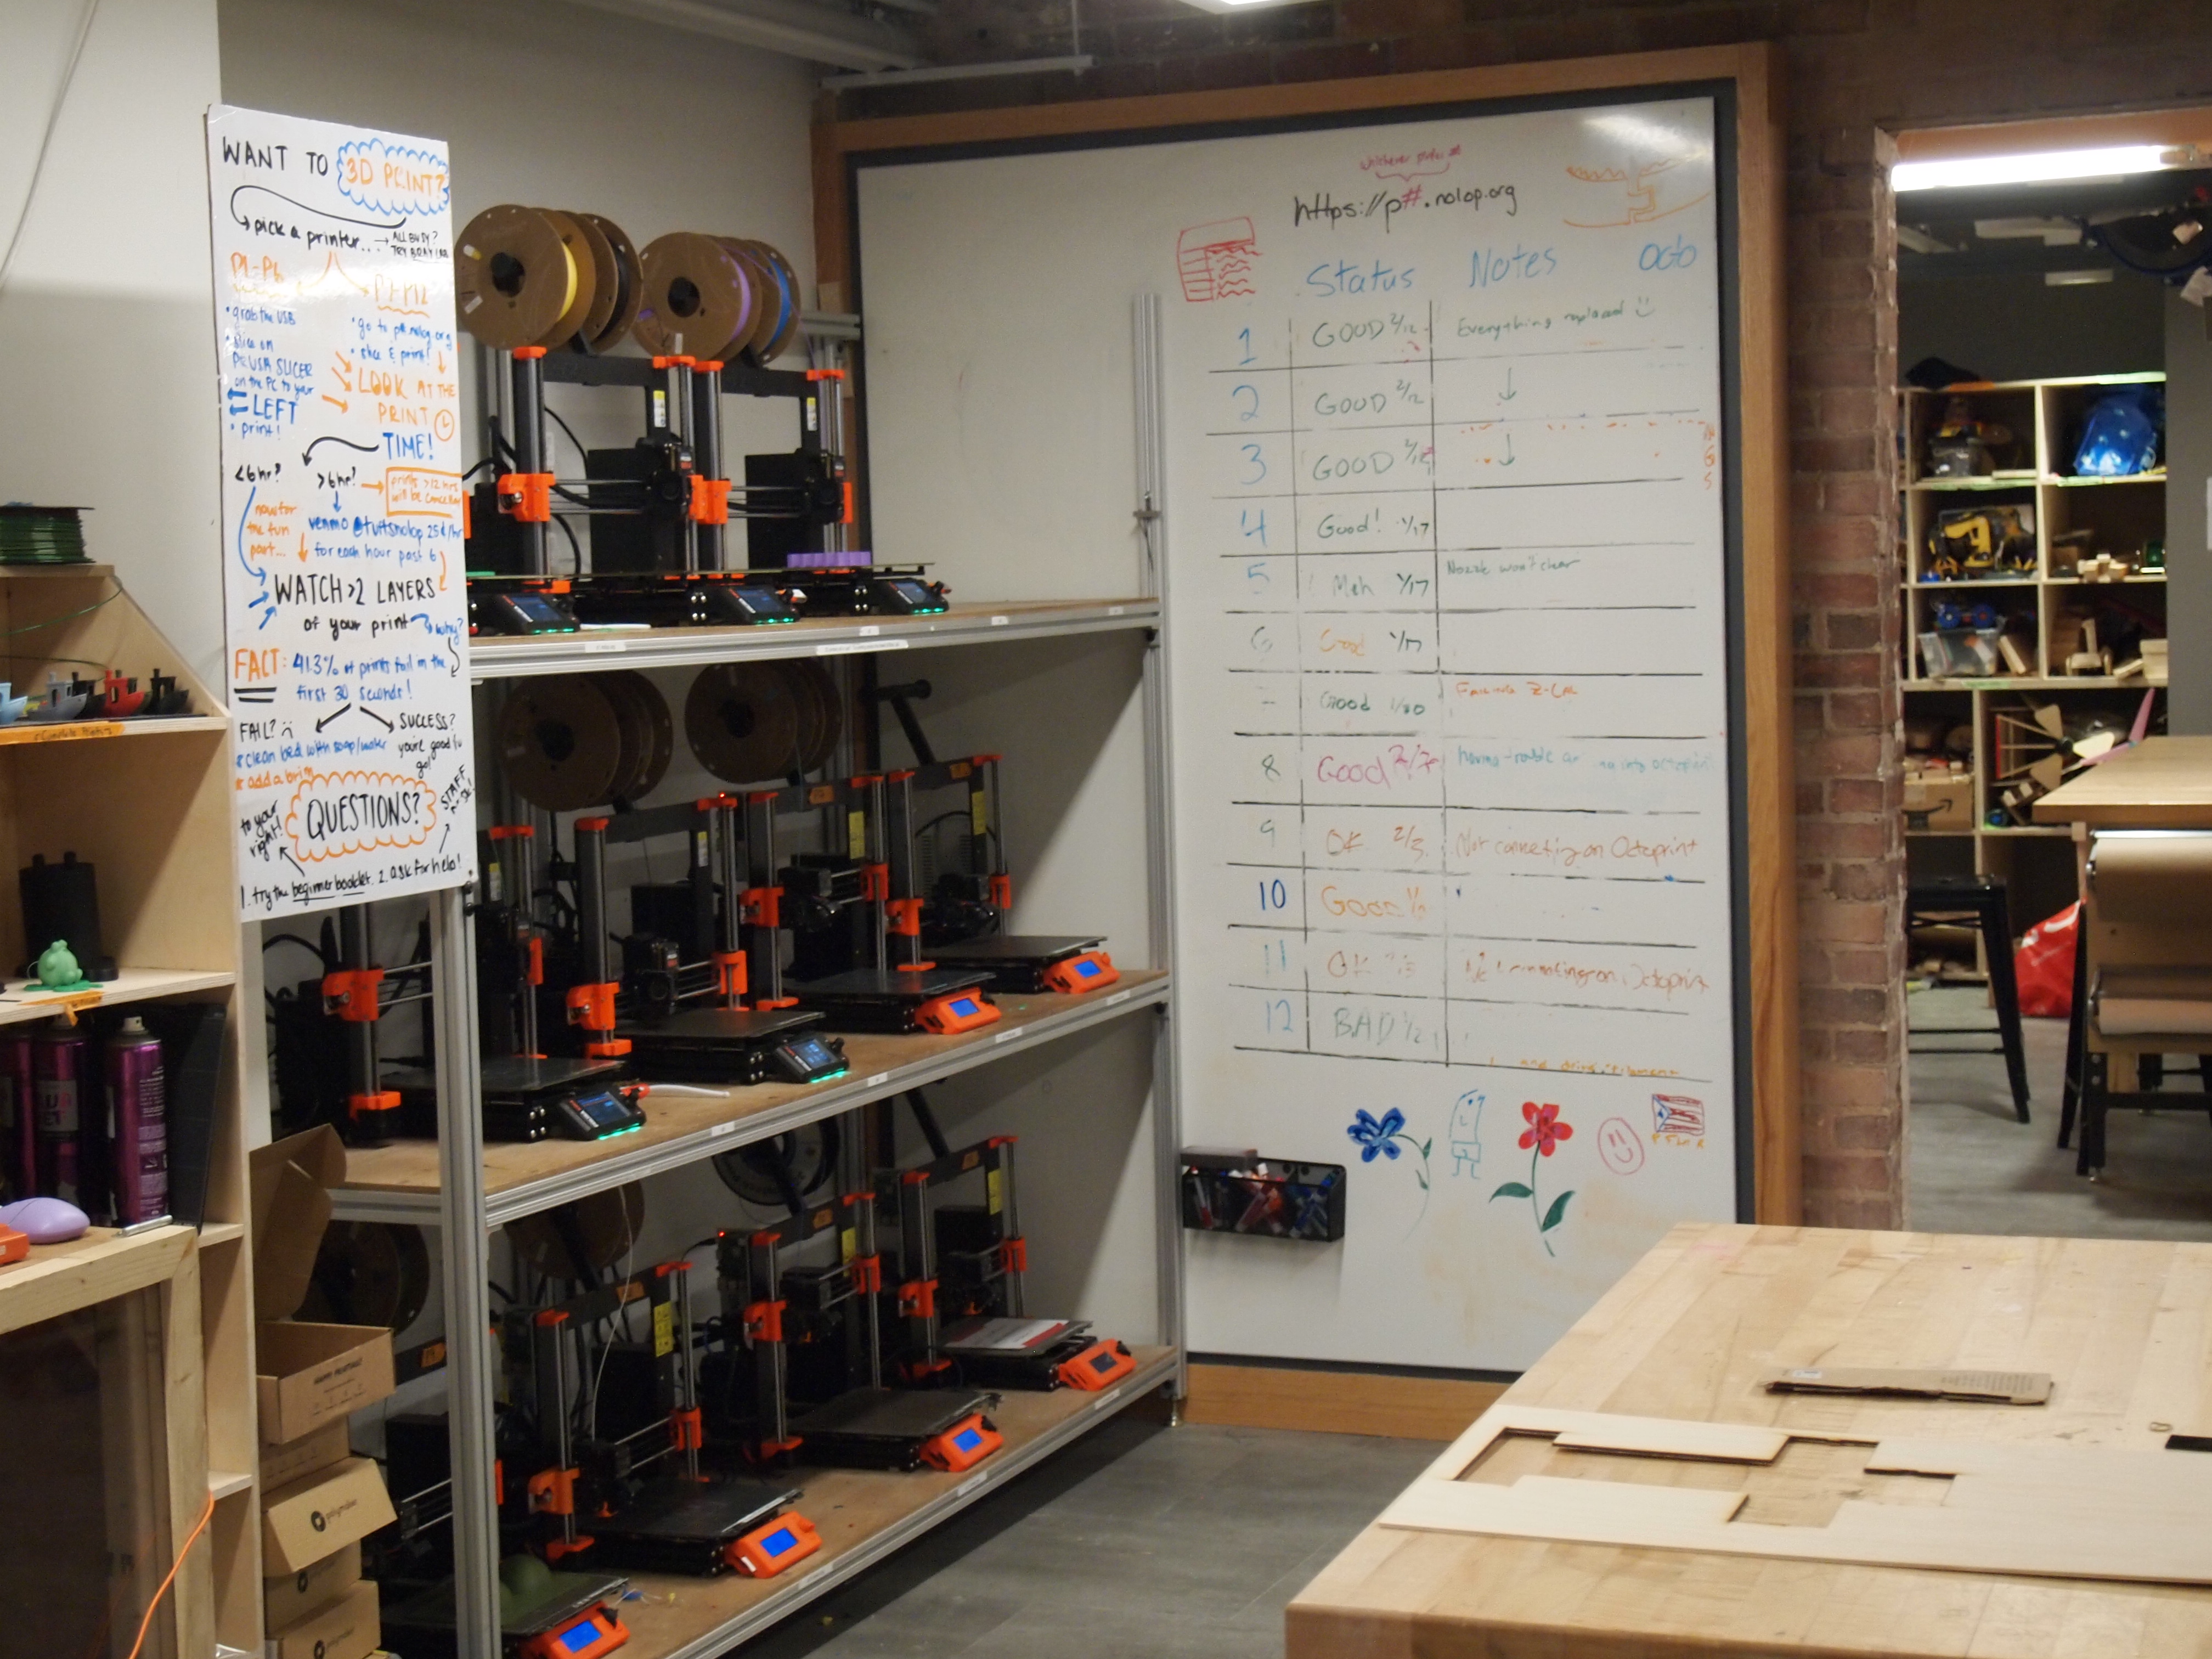 WANT TO 3D PRINT?
pick a printer...
→ ALL BUSY?
TRY BRAY LAB
P1-P6
• grab the USB
• slice on
PRUSA SLICER
on the PC to your
LEFT
• print!
P7-P12
• go to p#.nolop.org
• slice & print!
LOOK AT THE
PRINT
TIME!
<6hr?
>6hr?
prints >12 hrs
will be cancelled
now for
the fun
part...
venmo @tuftsnolop 25¢/hr
for each hour past 6
WATCH >2 LAYERS
of your print
why?
FACT: 41.3% of prints fail in the
first 30 seconds!
FAIL? :(
* clean bed with soap/water
* add a brim
SUCCESS?
you're good to
go!
QUESTIONS?
to your
right!
STAFF
1. try the beginner booklet. 2. ask for help!
whichever printer #
https://p#.nolop.org
Status Notes Octo
1 GOOD 2/12 Everything replaced :)
2 GOOD 2/12 ↓
3 GOOD 2/12 ↓
4 Good! 1/17
5 Meh 1/17 Nozzle won't clear
6 Good 1/17
Good 1/30 Z-
8 Good 2/7 having trouble into octoprint
9 OK 2/3 Not connecting on Octoprint
10 Good
11 OK on Octoprint
12 BAD
and drives filament